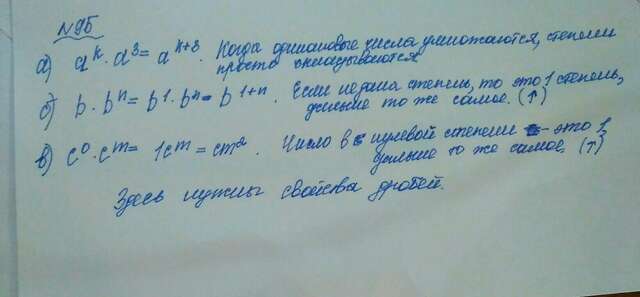 №95
а) aᵏ · a³ = aᵏ⁺³. Когда одинаковые числа умножаются, степени
просто складываются
б) b · bⁿ = b¹ · bⁿ = b¹⁺ⁿ. Если не дана степень, то это 1 степень,
дальше то же самое. (↑)
в) c⁰ · cᵐ = 1cᵐ = cm². Число в нулевой степени - это 1,
дальше то же самое. (↑)
Здесь нужны свойства дробей.